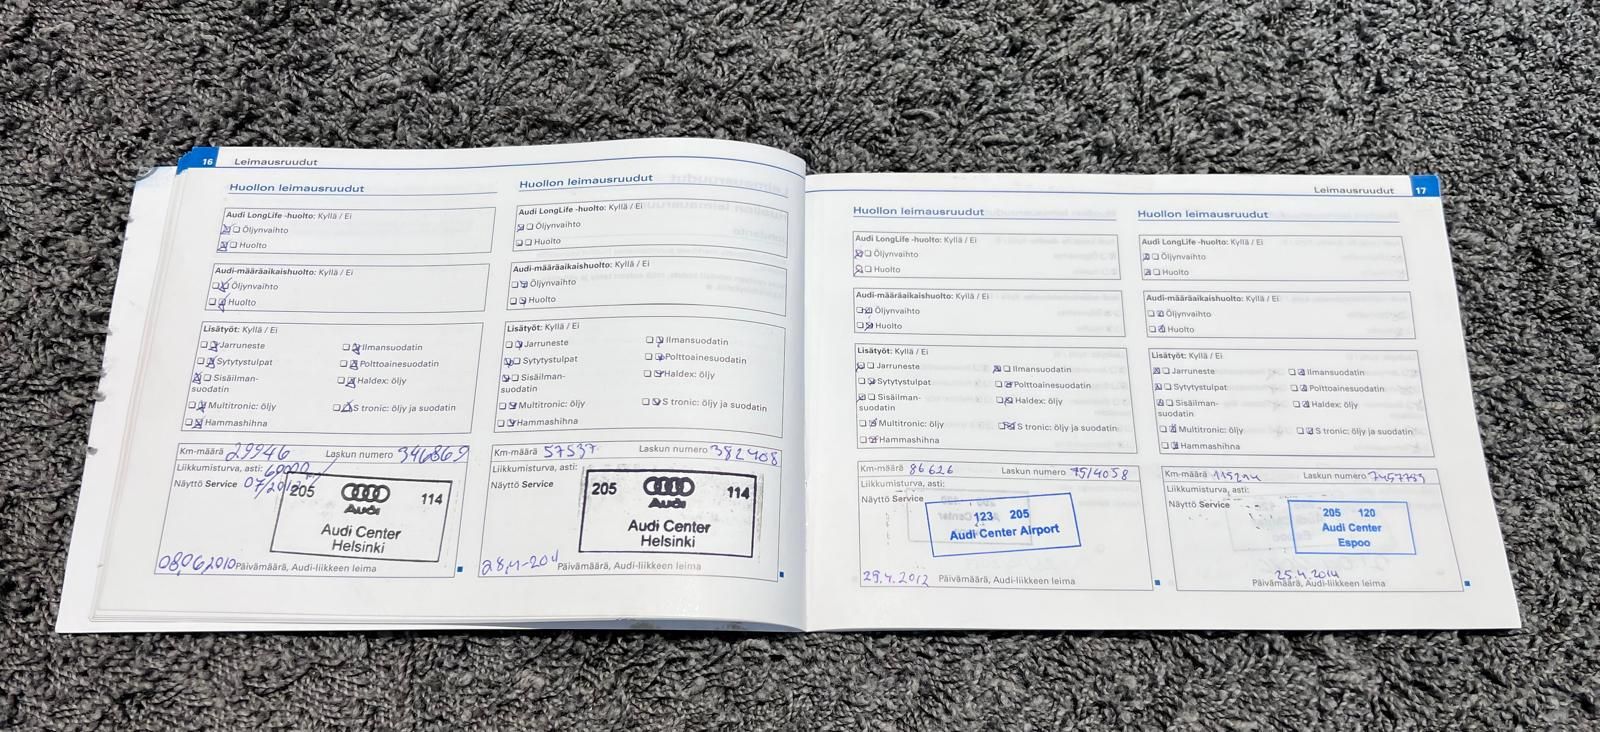 16 Leimausruudut
Huollon leimausruudut
Audi LongLife -huolto: Kyllä / Ei
Öljynvaihto
Huolto
Audi-määräaikaishuolto: Kyllä / Ei
Öljynvaihto
Huolto
Lisätyöt: Kyllä / Ei
Jarruneste
Ilmansuodatin
Sytytystulpat
Polttoainesuodatin
Sisäilman-
suodatin
Haldex: öljy
Multitronic: öljy
S tronic: öljy ja suodatin
Hammashihna
Km-määrä 29946 Laskun numero 346869
Liikkumisturva, asti: 60000/
Näyttö Service 07/2012
205 Audi 114
Audi Center
Helsinki
08.06.2010 Päivämäärä, Audi-liikkeen leima
Huollon leimausruudut
Audi LongLife -huolto: Kyllä / Ei
Öljynvaihto
Huolto
Audi-määräaikaishuolto: Kyllä / Ei
Öljynvaihto
Huolto
Lisätyöt: Kyllä / Ei
Jarruneste
Ilmansuodatin
Sytytystulpat
Polttoainesuodatin
Sisäilman-
suodatin
Haldex: öljy
Multitronic: öljy
S tronic: öljy ja suodatin
Hammashihna
Km-määrä 57537 Laskun numero 382408
Liikkumisturva, asti:
Näyttö Service
205 Audi 114
Audi Center
Helsinki
Päivämäärä, Audi-liikkeen leima
Leimausruudut 17
Huollon leimausruudut
Audi LongLife -huolto: Kyllä / Ei
Öljynvaihto
Huolto
Audi-määräaikaishuolto: Kyllä / Ei
Öljynvaihto
Huolto
Lisätyöt: Kyllä / Ei
Jarruneste
Ilmansuodatin
Sytytystulpat
Polttoainesuodatin
Sisäilman-
suodatin
Haldex: öljy
Multitronic: öljy
S tronic: öljy ja suodatin
Hammashihna
Km-määrä 86626 Laskun numero 75/4058
Liikkumisturva, asti:
Näyttö Service
123 205
Audi Center Airport
29.4.2012 Päivämäärä, Audi-liikkeen leima
Huollon leimausruudut
Audi LongLife -huolto: Kyllä / Ei
Öljynvaihto
Huolto
Audi-määräaikaishuolto: Kyllä / Ei
Öljynvaihto
Huolto
Lisätyöt: Kyllä / Ei
Jarruneste
Ilmansuodatin
Sytytystulpat
Polttoainesuodatin
Sisäilman-
suodatin
Haldex: öljy
Multitronic: öljy
S tronic: öljy ja suodatin
Hammashihna
Km-määrä Laskun numero
Liikkumisturva, asti:
Näyttö Service
205 120
Audi Center
Espoo
25.4.2014
Päivämäärä, Audi-liikkeen leima